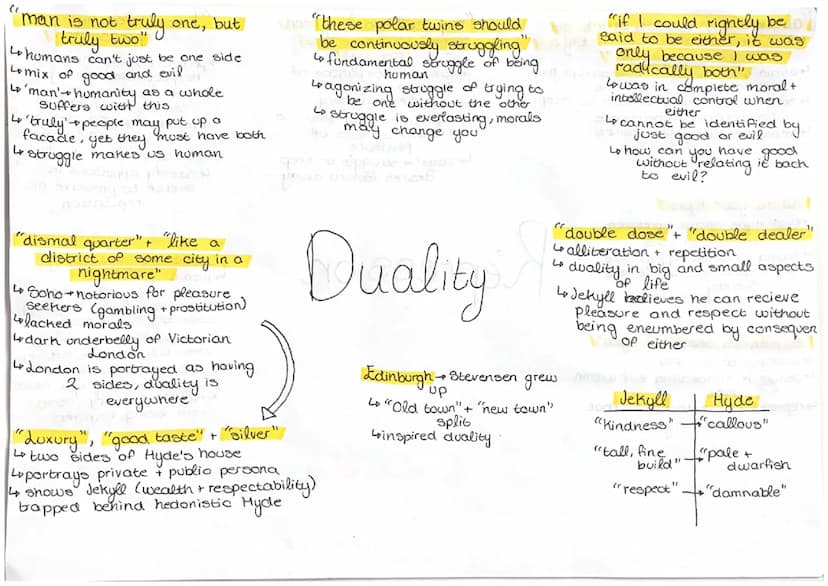 "man is not truly one, but
truly two"
↳ humans can't just be one side
↳ mix of good and evil
↳ 'man' → humanity as a whole
suffers with this
↳ 'truly' → people may put up a
facade, yet they must have both
↳ struggle makes us human
"these polar twins should
be continuously struggling"
↳ fundamental struggle of being
human
↳ agonizing struggle of trying to
be one without the other
↳ struggle is everlasting, morals
may change you
"if I could rightly be
said to be either, it was
only because I was
radically both"
↳ was in complete moral +
intellectual control when
either
↳ cannot be identified by
just good or evil
↳ how can you have good
without relating it back
to evil?
"dismal quarter" + "like a
district of some city in a
nightmare"
↳ Soho → notorious for pleasure
seekers (gambling + prostitution)
↳ lacked morals
↳ dark underbelly of Victorian
London
↳ London is portrayed as having
2 sides, duality is
everywhere
Duality
"double dose" + "double dealer"
↳ alliteration + repetition
↳ duality in big and small aspects
of life
↳ Jekyll believes he can recieve
pleasure and respect without
being eneumbered by consequen
of either
Edinburgh → Stevensen grew
up
↳ "Old town" + "new town"
split
↳ inspired duality
"Luxury", "good taste" + "silver"
↳ two sides of Hyde's house
↳ portrays private + public persona
↳ shows Jekyll (wealth + respectability)
trapped behind hedonistic Hyde
Jekyll Hyde
"kindness" → "callous"
"tall, fine
build" → "pale +
dwarfish
"respect" → "damnable"